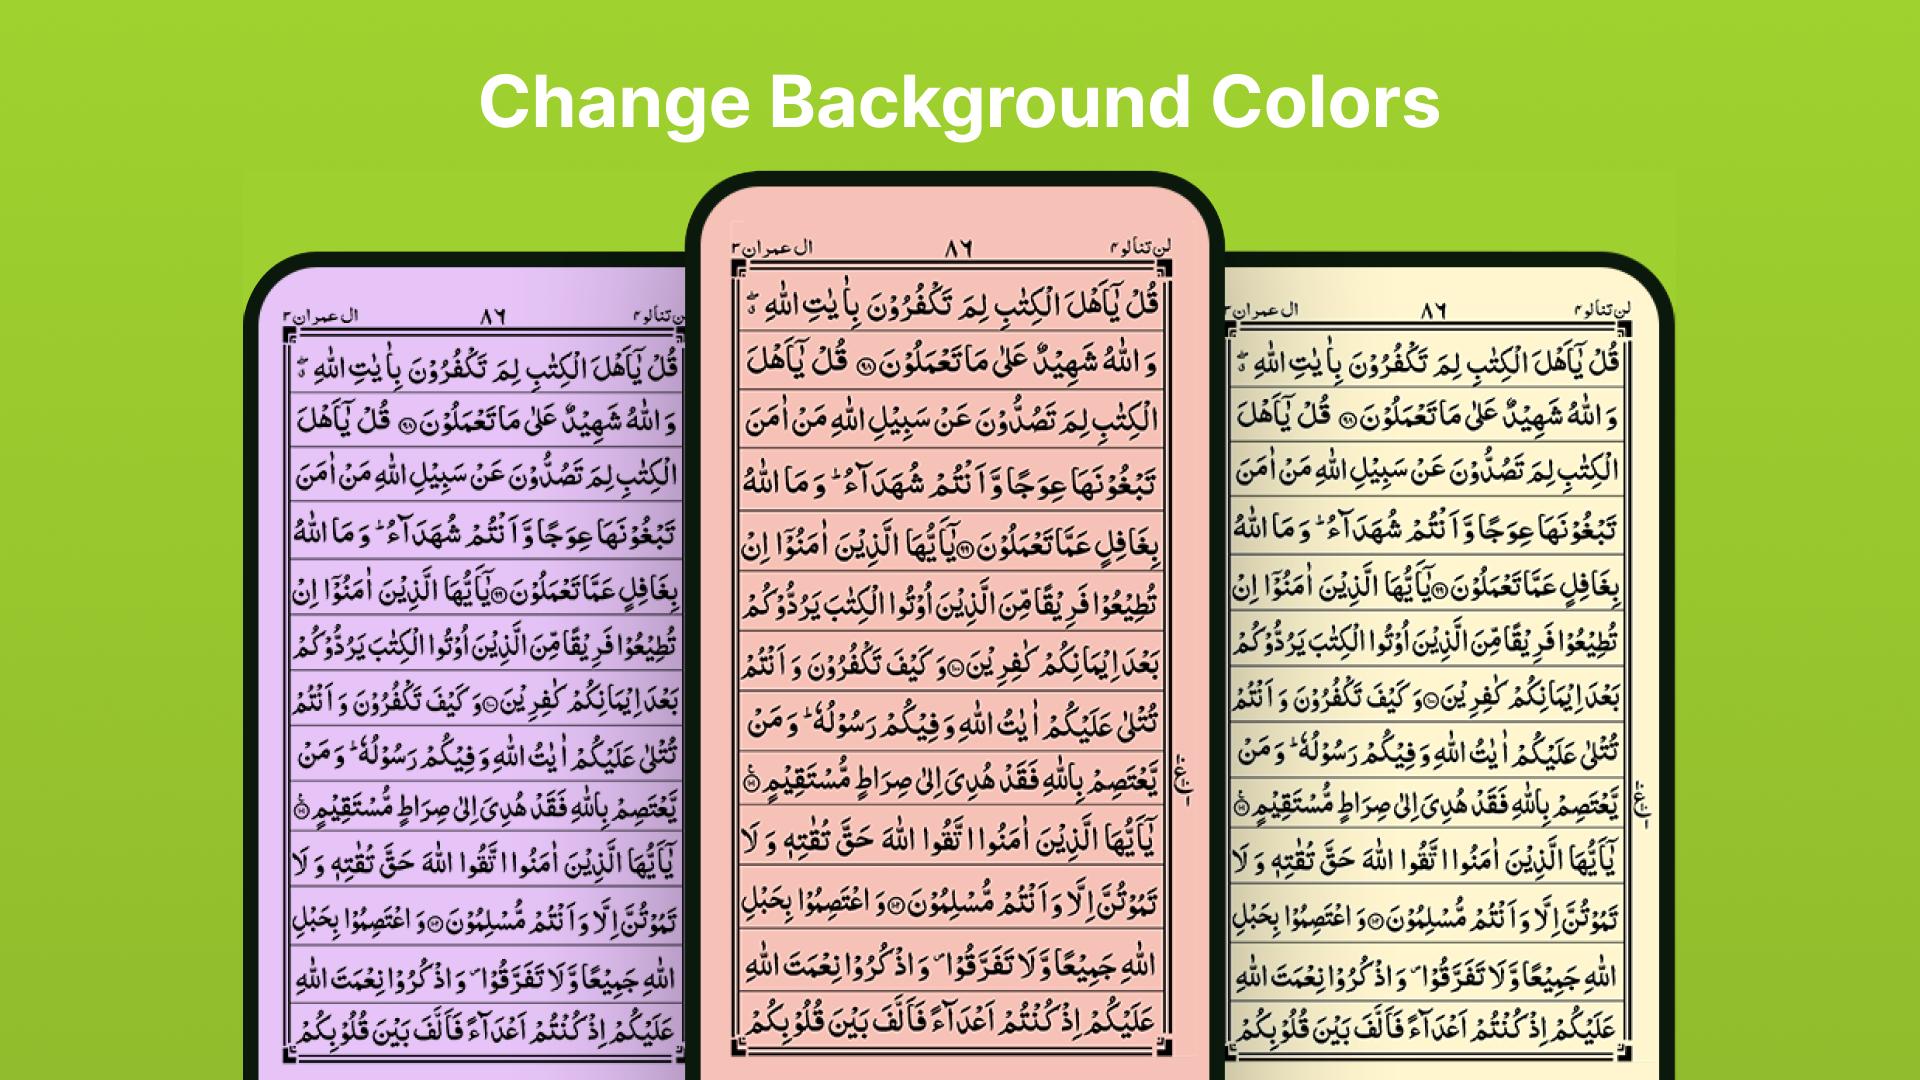 Change Background Colors
ال عمران ۳ ۸۶ لن تنالو ۴
قُلْ يٰۤاَهْلَ الْكِتٰبِ لِمَ تَكْفُرُوْنَ بِاٰيٰتِ اللّٰهِ ۖۗ
وَ اللّٰهُ شَهِيْدٌ عَلٰى مَا تَعْمَلُوْنَ ۹۸ قُلْ يٰۤاَهْلَ
الْكِتٰبِ لِمَ تَصُدُّوْنَ عَنْ سَبِيْلِ اللّٰهِ مَنْ اٰمَنَ
تَبْغُوْنَهَا عِوَجًا وَّ اَنْتُمْ شُهَدَآءُ ؕ وَ مَا اللّٰهُ
بِغَافِلٍ عَمَّا تَعْمَلُوْنَ ۹۹ يٰۤاَيُّهَا الَّذِيْنَ اٰمَنُوْۤا اِنْ
تُطِيْعُوْا فَرِيْقًا مِّنَ الَّذِيْنَ اُوْتُوا الْكِتٰبَ يَرُدُّوْكُمْ
بَعْدَ اِيْمَانِكُمْ كٰفِرِيْنَ ۱۰۰ وَ كَيْفَ تَكْفُرُوْنَ وَ اَنْتُمْ
تُتْلٰى عَلَيْكُمْ اٰيٰتُ اللّٰهِ وَ فِيْكُمْ رَسُوْلُهٗ ؕ وَ مَنْ
يَّعْتَصِمْ بِاللّٰهِ فَقَدْ هُدِىَ اِلٰى صِرَاطٍ مُّسْتَقِيْمٍ ۱۰۱
يٰۤاَيُّهَا الَّذِيْنَ اٰمَنُوا اتَّقُوا اللّٰهَ حَقَّ تُقٰتِهٖ وَ لَا
تَمُوْتُنَّ اِلَّا وَ اَنْتُمْ مُّسْلِمُوْنَ ۱۰۲ وَ اعْتَصِمُوْا بِحَبْلِ
اللّٰهِ جَمِيْعًا وَّ لَا تَفَرَّقُوْا ۪ وَ اذْكُرُوْا نِعْمَتَ اللّٰهِ
عَلَيْكُمْ اِذْ كُنْتُمْ اَعْدَآءً فَاَلَّفَ بَيْنَ قُلُوْبِكُمْ
ال عمران ۳ ۸۶ لن تنالو ۴
قُلْ يٰۤاَهْلَ الْكِتٰبِ لِمَ تَكْفُرُوْنَ بِاٰيٰتِ اللّٰهِ ۖۗ
وَ اللّٰهُ شَهِيْدٌ عَلٰى مَا تَعْمَلُوْنَ ۹۸ قُلْ يٰۤاَهْلَ
الْكِتٰبِ لِمَ تَصُدُّوْنَ عَنْ سَبِيْلِ اللّٰهِ مَنْ اٰمَنَ
تَبْغُوْنَهَا عِوَجًا وَّ اَنْتُمْ شُهَدَآءُ ؕ وَ مَا اللّٰهُ
بِغَافِلٍ عَمَّا تَعْمَلُوْنَ ۹۹ يٰۤاَيُّهَا الَّذِيْنَ اٰمَنُوْۤا اِنْ
تُطِيْعُوْا فَرِيْقًا مِّنَ الَّذِيْنَ اُوْتُوا الْكِتٰبَ يَرُدُّوْكُمْ
بَعْدَ اِيْمَانِكُمْ كٰفِرِيْنَ ۱۰۰ وَ كَيْفَ تَكْفُرُوْنَ وَ اَنْتُمْ
تُتْلٰى عَلَيْكُمْ اٰيٰتُ اللّٰهِ وَ فِيْكُمْ رَسُوْلُهٗ ؕ وَ مَنْ
يَّعْتَصِمْ بِاللّٰهِ فَقَدْ هُدِىَ اِلٰى صِرَاطٍ مُّسْتَقِيْمٍ ۱۰۱
يٰۤاَيُّهَا الَّذِيْنَ اٰمَنُوا اتَّقُوا اللّٰهَ حَقَّ تُقٰتِهٖ وَ لَا
تَمُوْتُنَّ اِلَّا وَ اَنْتُمْ مُّسْلِمُوْنَ ۱۰۲ وَ اعْتَصِمُوْا بِحَبْلِ
اللّٰهِ جَمِيْعًا وَّ لَا تَفَرَّقُوْا ۪ وَ اذْكُرُوْا نِعْمَتَ اللّٰهِ
عَلَيْكُمْ اِذْ كُنْتُمْ اَعْدَآءً فَاَلَّفَ بَيْنَ قُلُوْبِكُمْ
ال عمران ۳ ۸۶ لن تنالو ۴
قُلْ يٰۤاَهْلَ الْكِتٰبِ لِمَ تَكْفُرُوْنَ بِاٰيٰتِ اللّٰهِ ۖۗ
وَ اللّٰهُ شَهِيْدٌ عَلٰى مَا تَعْمَلُوْنَ ۹۸ قُلْ يٰۤاَهْلَ
الْكِتٰبِ لِمَ تَصُدُّوْنَ عَنْ سَبِيْلِ اللّٰهِ مَنْ اٰمَنَ
تَبْغُوْنَهَا عِوَجًا وَّ اَنْتُمْ شُهَدَآءُ ؕ وَ مَا اللّٰهُ
بِغَافِلٍ عَمَّا تَعْمَلُوْنَ ۹۹ يٰۤاَيُّهَا الَّذِيْنَ اٰمَنُوْۤا اِنْ
تُطِيْعُوْا فَرِيْقًا مِّنَ الَّذِيْنَ اُوْتُوا الْكِتٰبَ يَرُدُّوْكُمْ
بَعْدَ اِيْمَانِكُمْ كٰفِرِيْنَ ۱۰۰ وَ كَيْفَ تَكْفُرُوْنَ وَ اَنْتُمْ
تُتْلٰى عَلَيْكُمْ اٰيٰتُ اللّٰهِ وَ فِيْكُمْ رَسُوْلُهٗ ؕ وَ مَنْ
يَّعْتَصِمْ بِاللّٰهِ فَقَدْ هُدِىَ اِلٰى صِرَاطٍ مُّسْتَقِيْمٍ ۱۰۱
يٰۤاَيُّهَا الَّذِيْنَ اٰمَنُوا اتَّقُوا اللّٰهَ حَقَّ تُقٰتِهٖ وَ لَا
تَمُوْتُنَّ اِلَّا وَ اَنْتُمْ مُّسْلِمُوْنَ ۱۰۲ وَ اعْتَصِمُوْا بِحَبْلِ
اللّٰهِ جَمِيْعًا وَّ لَا تَفَرَّقُوْا ۪ وَ اذْكُرُوْا نِعْمَتَ اللّٰهِ
عَلَيْكُمْ اِذْ كُنْتُمْ اَعْدَآءً فَاَلَّفَ بَيْنَ قُلُوْبِكُمْ